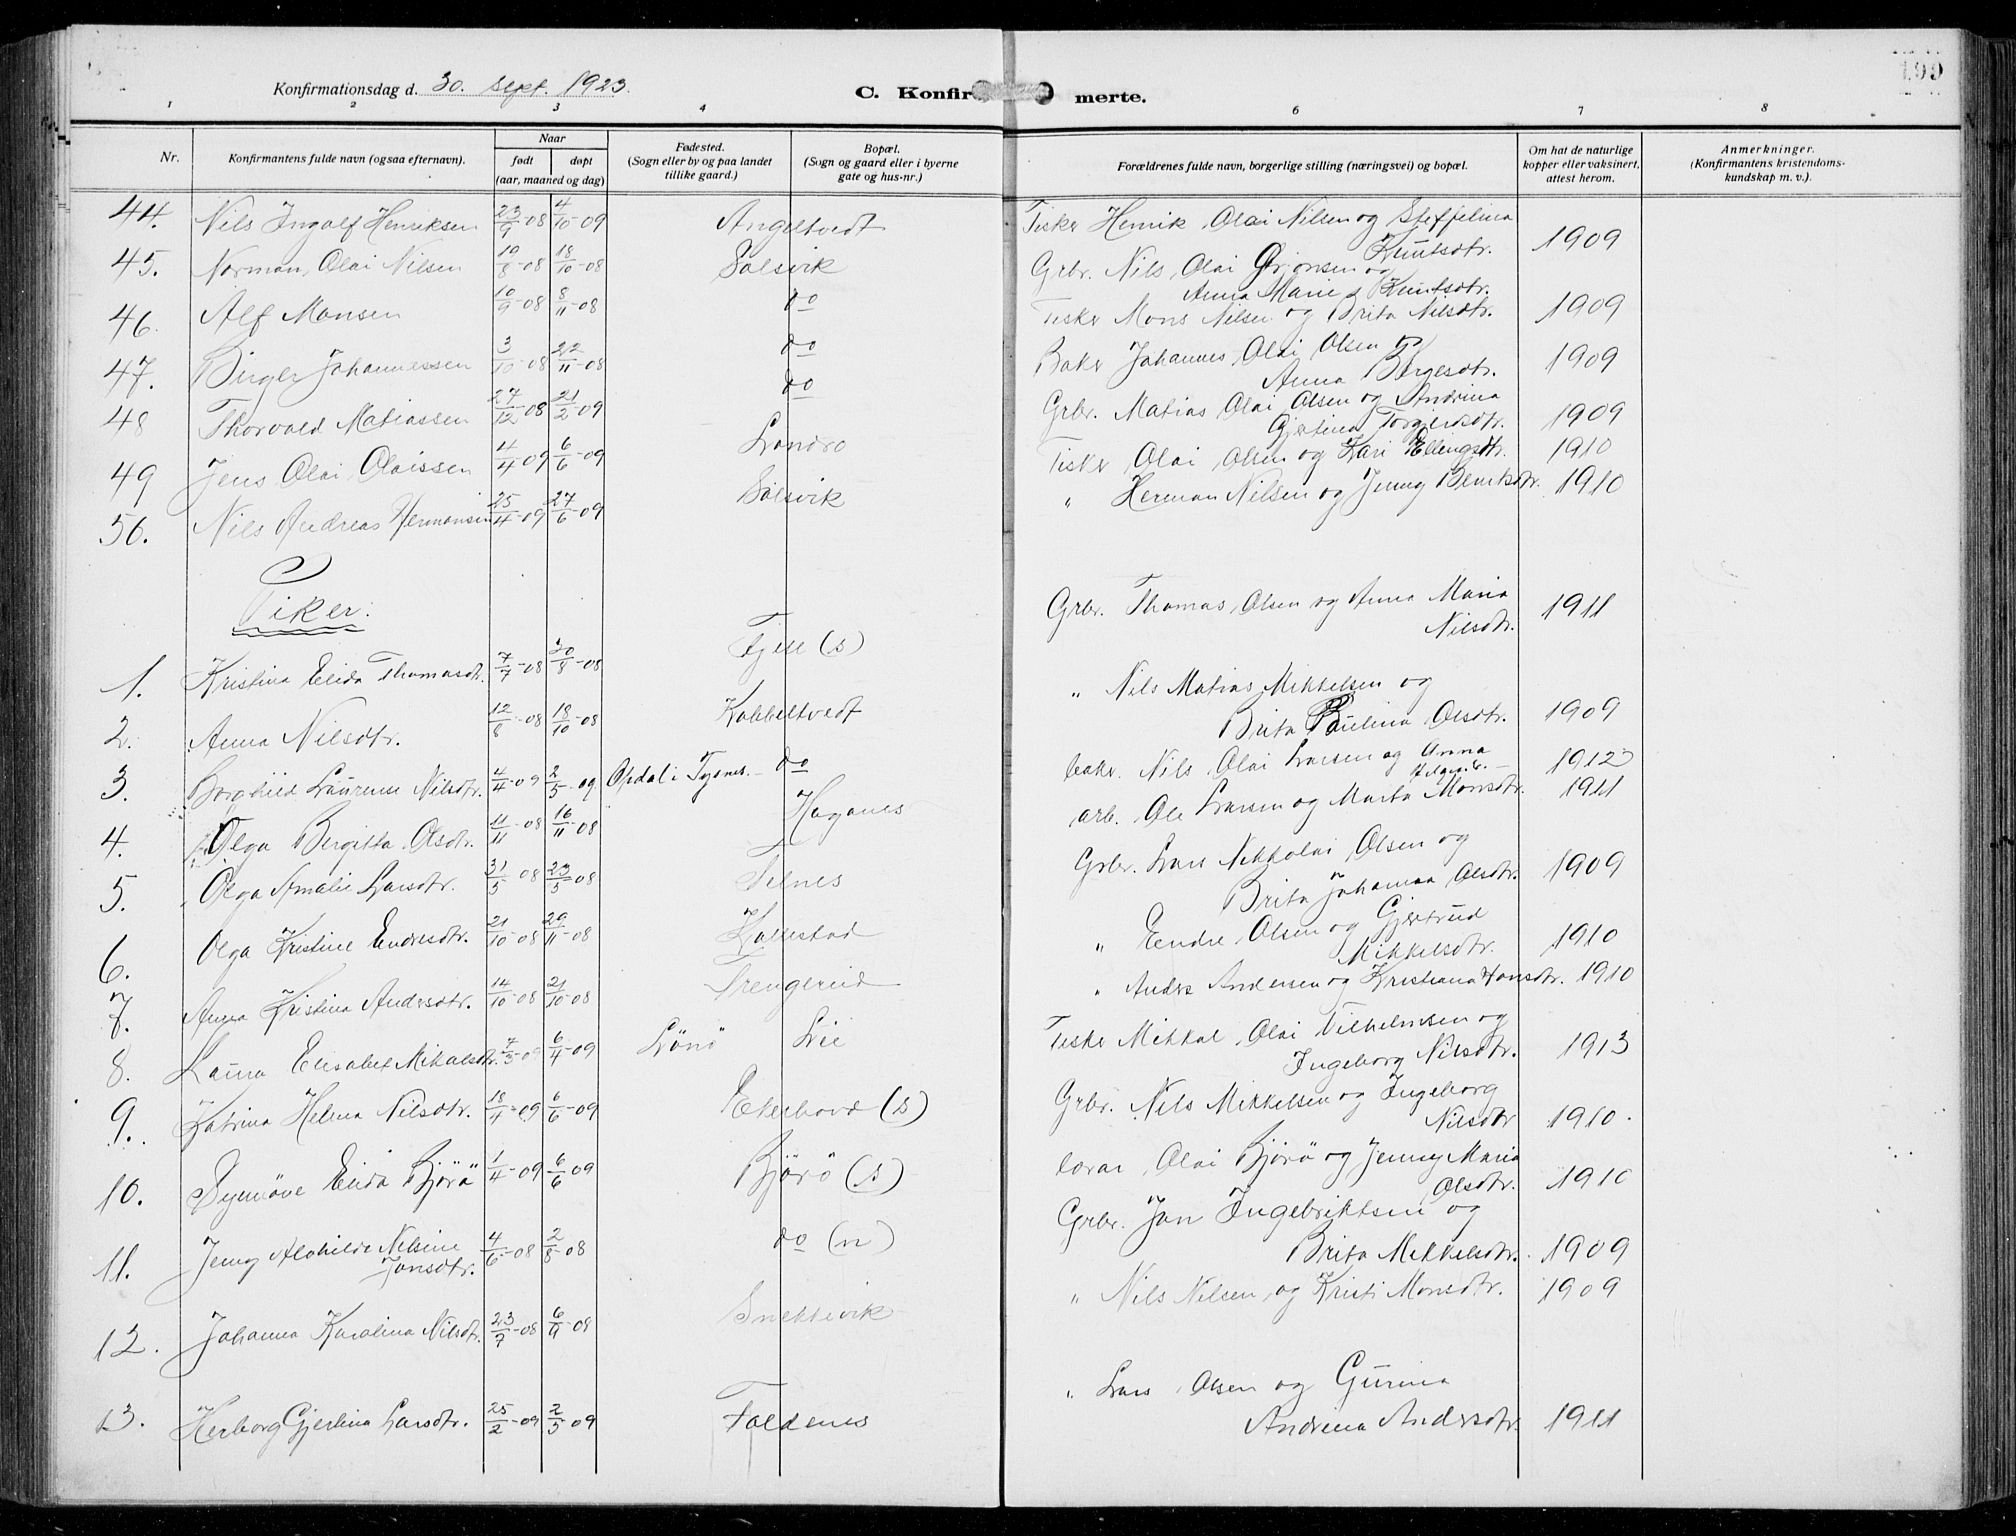 199
Konfirmationsdag d. 30. sept. 1923.
C. Konfir merte.
1 2 3 4 6 7 8
Nr. Konfirmantens fulde navn (ogsaa efternavn). Naar født døpt (aar, maaned og dag) Fødested. (Sogn eller by og paa landet tillike gaard.) Bopæl. (Sogn og gaard eller i byerne gate og hus-nr.) Forældrenes fulde navn, borgerlige stilling (næringsvei) og bopæl. Om hat de naturlige kopper eller vaksinert, attest herom. Anmerkninger. (Konfirmantens kristendoms-kundskap m. v.).
44. Nils Ingolf Henriksen 23/9-08 4/10-09 Angeltvedt Fisker Henrik Olai Nilsen og Steffelina Knutsdtr. 1909
45. Norman Olai Nilsen 19/8-08 18/10-08 Solsvik Grbr. Nils Olai Ørjansen og Anna Marie Knutsdtr.
46. Alf Monsen 10/9-08 8/11-08 do Fisker Mons Nilsen og Brita Nilsdtr. 1909
47. Birger Johannessen 3/10-08 22/11-08 do Baker Johannes Olai Olsen og Anna Børgesdtr. 1909
48 Thorvald Matiassen 27/12-08 21/2-09 do Grbr. Matias Olai Olsen og Andrina Gjertina Torgersdtr. 1909
49 Jens Olai Olaissen 4/4-09 6/6-09 Landro Fisker Olai Olsen og Kari Ellingsdtr. 1910
50. Nils Andreas Hermansen 25/4-09 27/6-09 Solsvik " Herman Nilsen og Jenny Benksdtr. 1910
Piker.
1. Kristina Elida Thomasdtr. 7/7-08 30/8-08 Fjell (s) Grbr. Thomas Olsen og Anna Maria Nilsdtr. 1911
2. Anna Nilsdtr. 12/8-08 18/10-08 Kobbeltvedt " Nils Matias Mikkelsen og Brita Paulina Olsdtr. 1909
3. Borghild Laurense Nilsdtr. 4/4-09 2/5-09 Opdal i Tysnes. do baker. Nils Olai Larsen og Anna 1912
4. Olga Birgitta Olsdtr. 11/11-08 16/11-08 Haganes arb. Ole Larsen og Marta Monsdtr. 1911
5. Olga Amalie Larsdtr. 31/5-08 23/5-08 Selnes Grbr. Lars Nikkolai Olsen og Brita Johanna Olsdtr. 1909
6. Olga Kristine Endresdtr. 21/10-08 29/11-08 Kallestad " Endre Olsen og Gjertrud Mikkelsdtr. 1910
7. Anna Kristina Andersdtr. 14/10-08 21/10-08 Trengereid " Anders Andersen og Kristiana Hansdtr. 1910
8. Laura Elisabet Mikalsdtr. 7/3-09 6/4-09 Lönö Lie Fisker Mikkal Olai Vilhelmsen og Ingeborg Nilsdtr. 1913
9. Katrina Helena Nilsdtr. 18/4-09 6/6-09 Ekerhovd (s) Grbr. Nils Mikkelsen og Ingeborg Nilsdtr 1910.
10. Synnöve Elida Björö 1/4-09 6/6 09 Björö (s) lærar Olai Björö og Jenny Maria Olsdtr. 1910
11. Jenny Alvhilde Nilsine Jonsdtr. 4/6-08 2/8-08 do (n) Grbr. Jon Ingebriktsen og Brita Mikkelsdtr. 1909
12. Johanna Karolina Nilsdtr. 23/7-08 6/9-08 Snekkevik " Nils Nilsen og Kristi Monsdtr. 1909
13. Herborg Gjertina Larsdtr. 25/2-09 2/5 09 Foldenes " Lars Olsen og Gurina Andrina Andersdtr. 1911